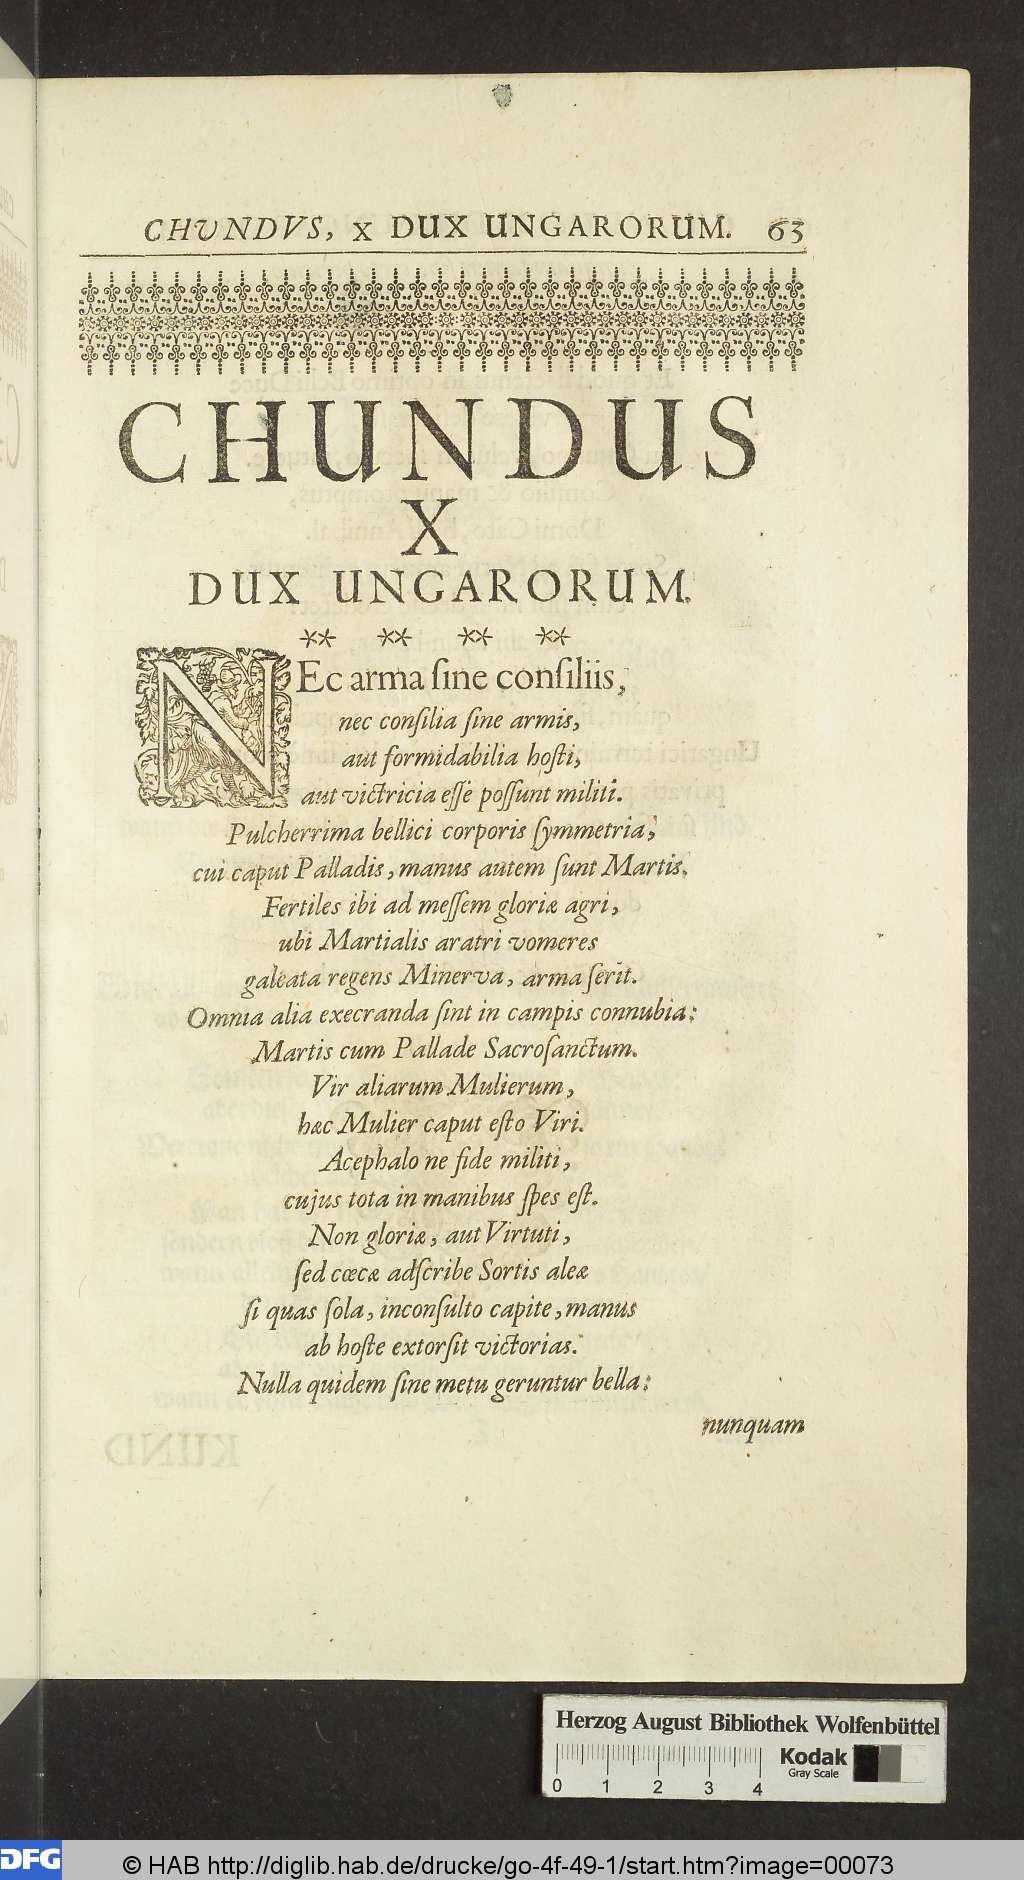 CHUNDVS, X DUX UNGARORUM. 63
CHUNDUS
X
DUX UNGARORUM.
** ** ** **
NEc arma ſine conſiliis,
nec conſilia ſine armis,
aut formidabilia hoſti,
aut victricia eſſe poſſunt militi.
Pulcherrima bellici corporis ſymmetria,
cui caput Palladis, manus autem ſunt Martis.
Fertiles ibi ad meſſem gloriæ agri,
ubi Martialis aratri vomeres
galeata regens Minerva, arma ſerit.
Omnia alia execranda ſint in campis connubia:
Martis cum Pallade Sacroſanctum.
Vir aliarum Mulierum,
hæc Mulier caput eſto Viri.
Acephalo ne fide militi,
cujus tota in manibus ſpes eſt.
Non gloriæ, aut Virtuti,
ſed cœcæ adſcribe Sortis aleæ
ſi quas ſola, inconſulto capite, manus
ab hoſte extorſit victorias.
Nulla quidem ſine metu geruntur bella:
nunquam
Herzog August Bibliothek Wolfenbüttel
Kodak
Gray Scale
0 1 2 3 4
DFG
© HAB http://diglib.hab.de/drucke/go-4f-49-1/start.htm?image=00073